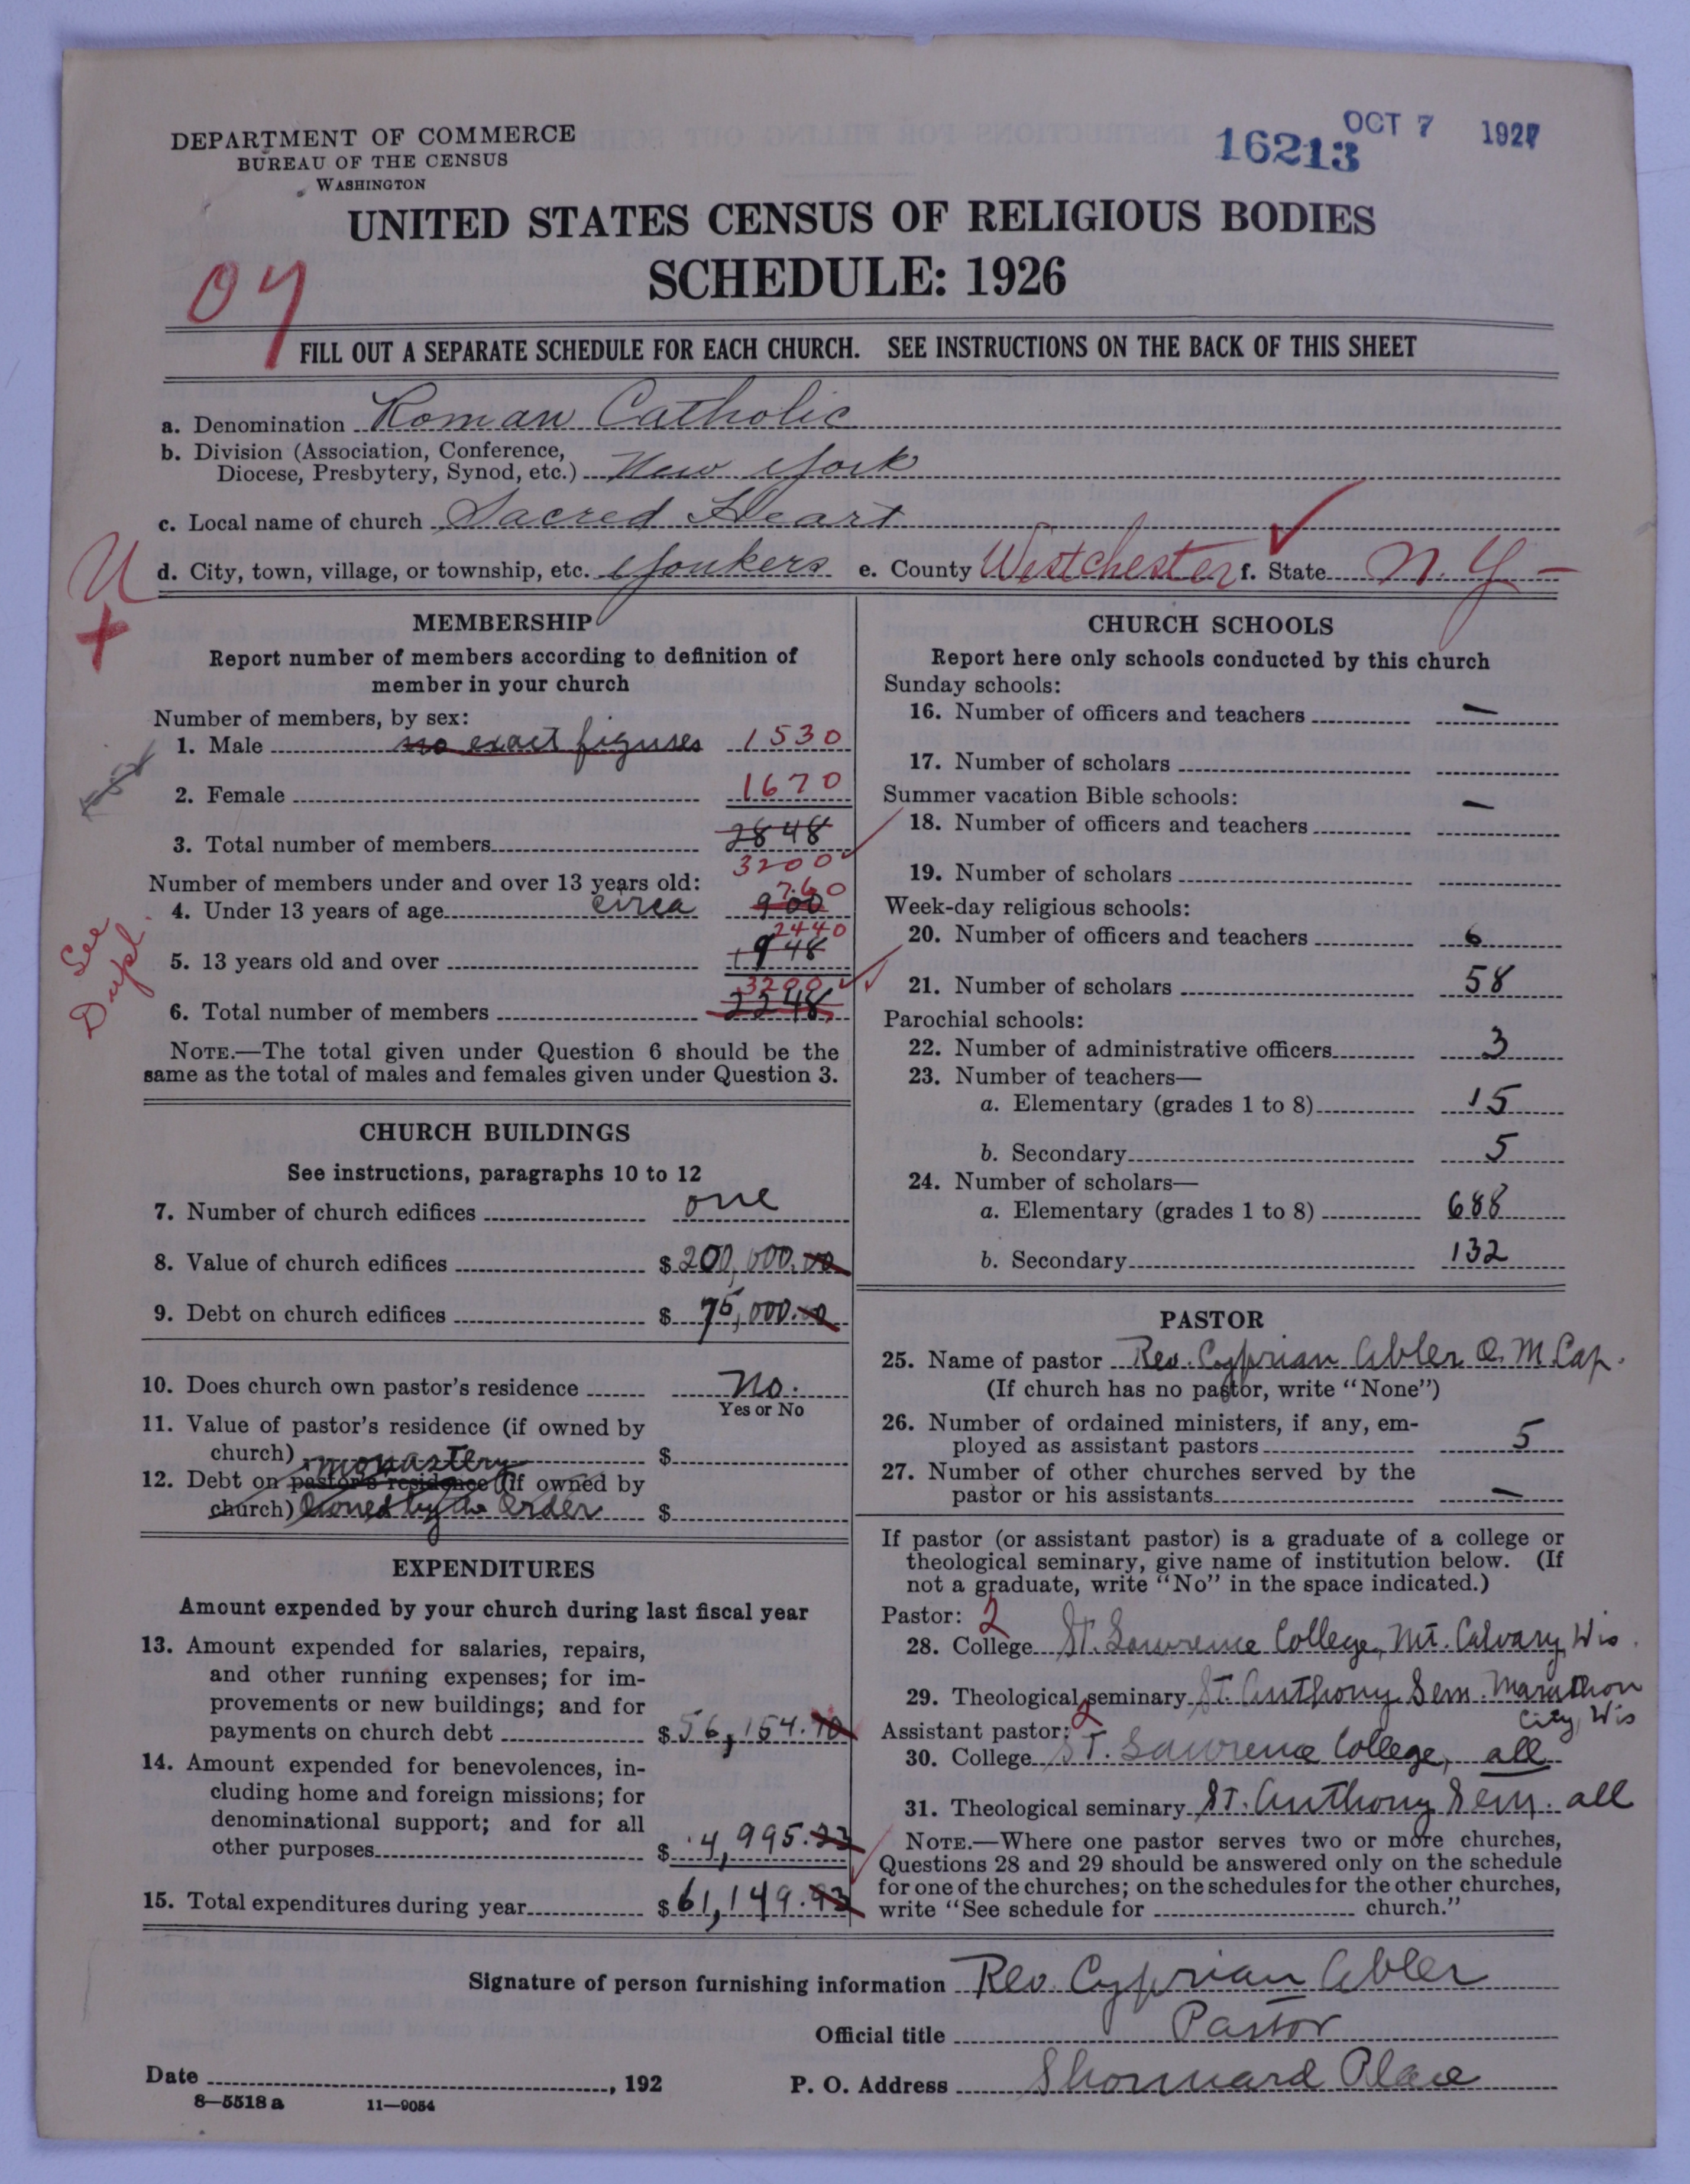 DEPARTMENT OF COMMERCE
BUREAU OF THE CENSUS
WASHINGTON
16213 OCT 7 1927
UNITED STATES CENSUS OF RELIGIOUS BODIES
SCHEDULE: 1926
04
FILL OUT A SEPARATE SCHEDULE FOR EACH CHURCH. SEE INSTRUCTIONS ON THE BACK OF THIS SHEET
a. Denomination Roman Catholic
b. Division (Association, Conference,
Diocese, Presbytery, Synod, etc.) New York
c. Local name of church Sacred Heart
d. City, town, village, or township, etc. Yonkers e. County Westchester f. State N. Y –
U
X
MEMBERSHIP
Report number of members according to definition of
member in your church
Number of members, by sex:
1. Male no exact figures 1530
2. Female 1670
3. Total number of members 2848
3200
Number of members under and over 13 years old:
760
4. Under 13 years of age circa 900
2440
5. 13 years old and over 1948
3200
6. Total number of members 2248
See
Dupl.
NOTE.—The total given under Question 6 should be the
same as the total of males and females given under Question 3.
CHURCH BUILDINGS
See instructions, paragraphs 10 to 12
7. Number of church edifices one
8. Value of church edifices $ 200,000.00
9. Debt on church edifices $ 75,000.00
10. Does church own pastor's residence No.
Yes or No
11. Value of pastor's residence (if owned by
church) monastery $
12. Debt on pastor's residence (if owned by
church) owned by the Order $
EXPENDITURES
Amount expended by your church during last fiscal year
13. Amount expended for salaries, repairs,
and other running expenses; for im-
provements or new buildings; and for
payments on church debt $ 56,154.70
14. Amount expended for benevolences, in-
cluding home and foreign missions; for
denominational support; and for all
other purposes $ 4,995.23
15. Total expenditures during year $ 61,149.93
CHURCH SCHOOLS
Report here only schools conducted by this church
Sunday schools:
16. Number of officers and teachers —
17. Number of scholars
Summer vacation Bible schools: —
18. Number of officers and teachers
19. Number of scholars
Week-day religious schools:
20. Number of officers and teachers 6
21. Number of scholars 58
Parochial schools:
22. Number of administrative officers 3
23. Number of teachers—
a. Elementary (grades 1 to 8) 15
b. Secondary 5
24. Number of scholars—
a. Elementary (grades 1 to 8) 688
b. Secondary 132
PASTOR
25. Name of pastor Rev. Cyprian Abler O. M. Cap.
(If church has no pastor, write "None")
26. Number of ordained ministers, if any, em-
ployed as assistant pastors 5
27. Number of other churches served by the
pastor or his assistants —
If pastor (or assistant pastor) is a graduate of a college or
theological seminary, give name of institution below. (If
not a graduate, write "No" in the space indicated.)
Pastor: 2
28. College St. Lawrence College, Mt. Calvary, Wis.
29. Theological seminary St. Anthony Sem. Marathon
City, Wis
Assistant pastor: 2
30. College St. Lawrence College, all
31. Theological seminary St. Anthony Sem. all
NOTE.—Where one pastor serves two or more churches,
Questions 28 and 29 should be answered only on the schedule
for one of the churches; on the schedules for the other churches,
write "See schedule for church."
Signature of person furnishing information Rev. Cyprian Abler
Official title Pastor
Date , 192 P. O. Address Shonnard Place
8—5518 a 11—9054